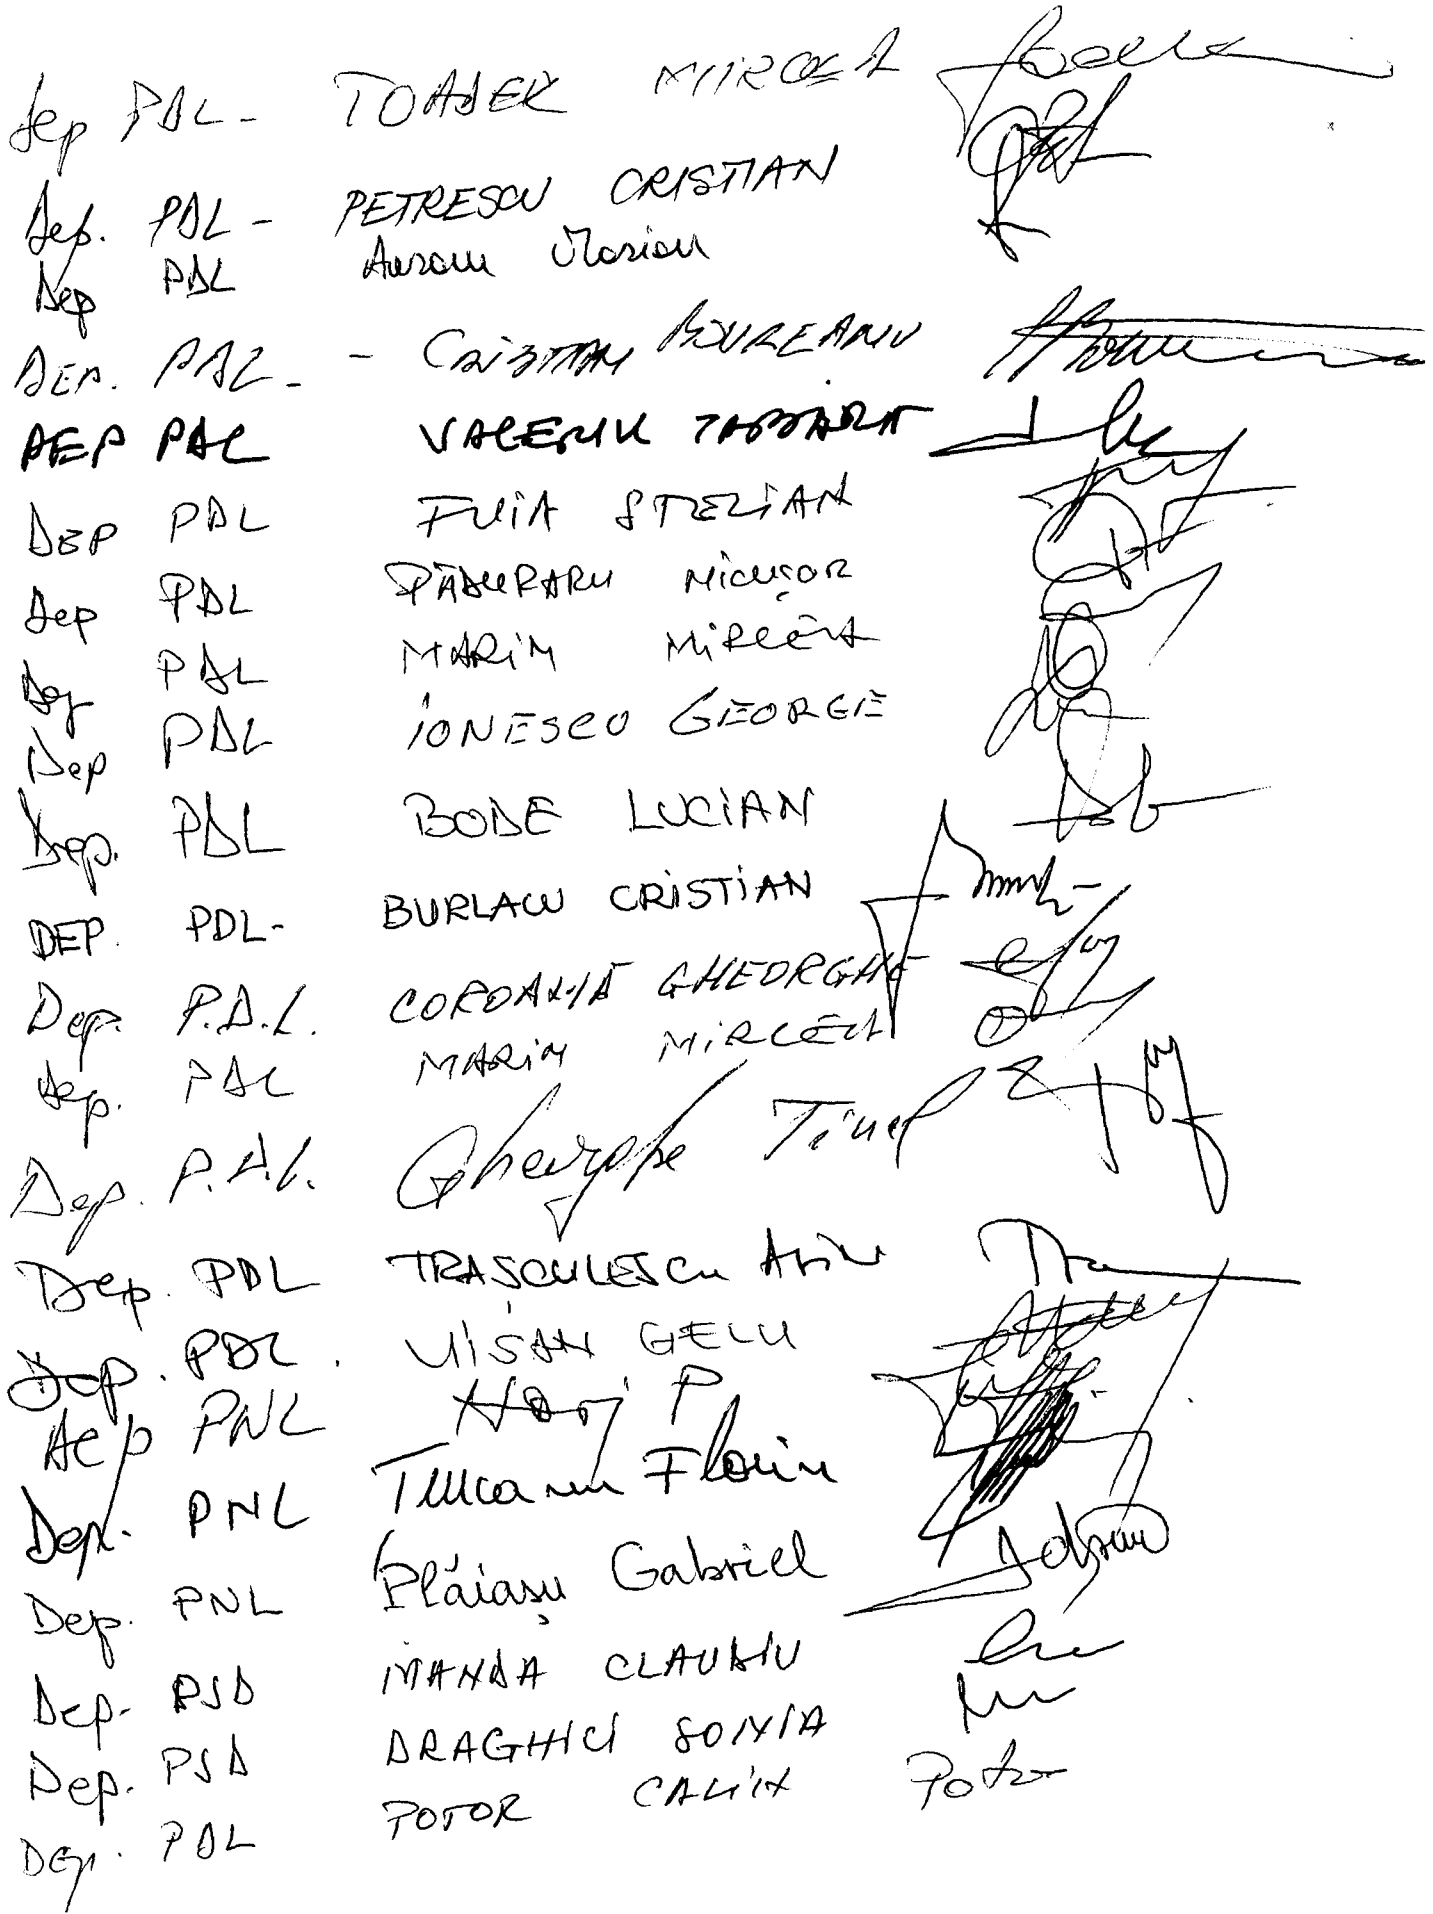 Dep PDL - TOADER MIRCEA
Dep. PDL - PETRESCU CRISTIAN
Dep PDL Avram Marian
DEP. PDL - - CRISTIAN BOUREANU
DEP PDL VALERIU TABĂRĂ
DEP PDL FUIA STELIAN
Dep PDL PĂDURARU NICUȘOR
Dep PDL MARIN MIRCEA
Dep PDL IONESCU GEORGE
Dep. PDL BODE LUCIAN
DEP. PDL - BURLACU CRISTIAN
Dep. P.D.L. COROAMĂ GHEORGHE
Dep. PDL MARIN MIRCEA
Dep. P.D.L. Gheorghe Tinel
Dep. PDL TRAȘCULESCU Alin
Dep. PDL. VIȘAN GELU
Dep PNL P.
Dep. PNL Țurcanu Florin
Dep. PNL Plăiașu Gabriel
Dep. PSD MANDA CLAUDIU
Dep. PSD DRAGHICI SONIA
Dep. PDL POTOR CALIN Potor